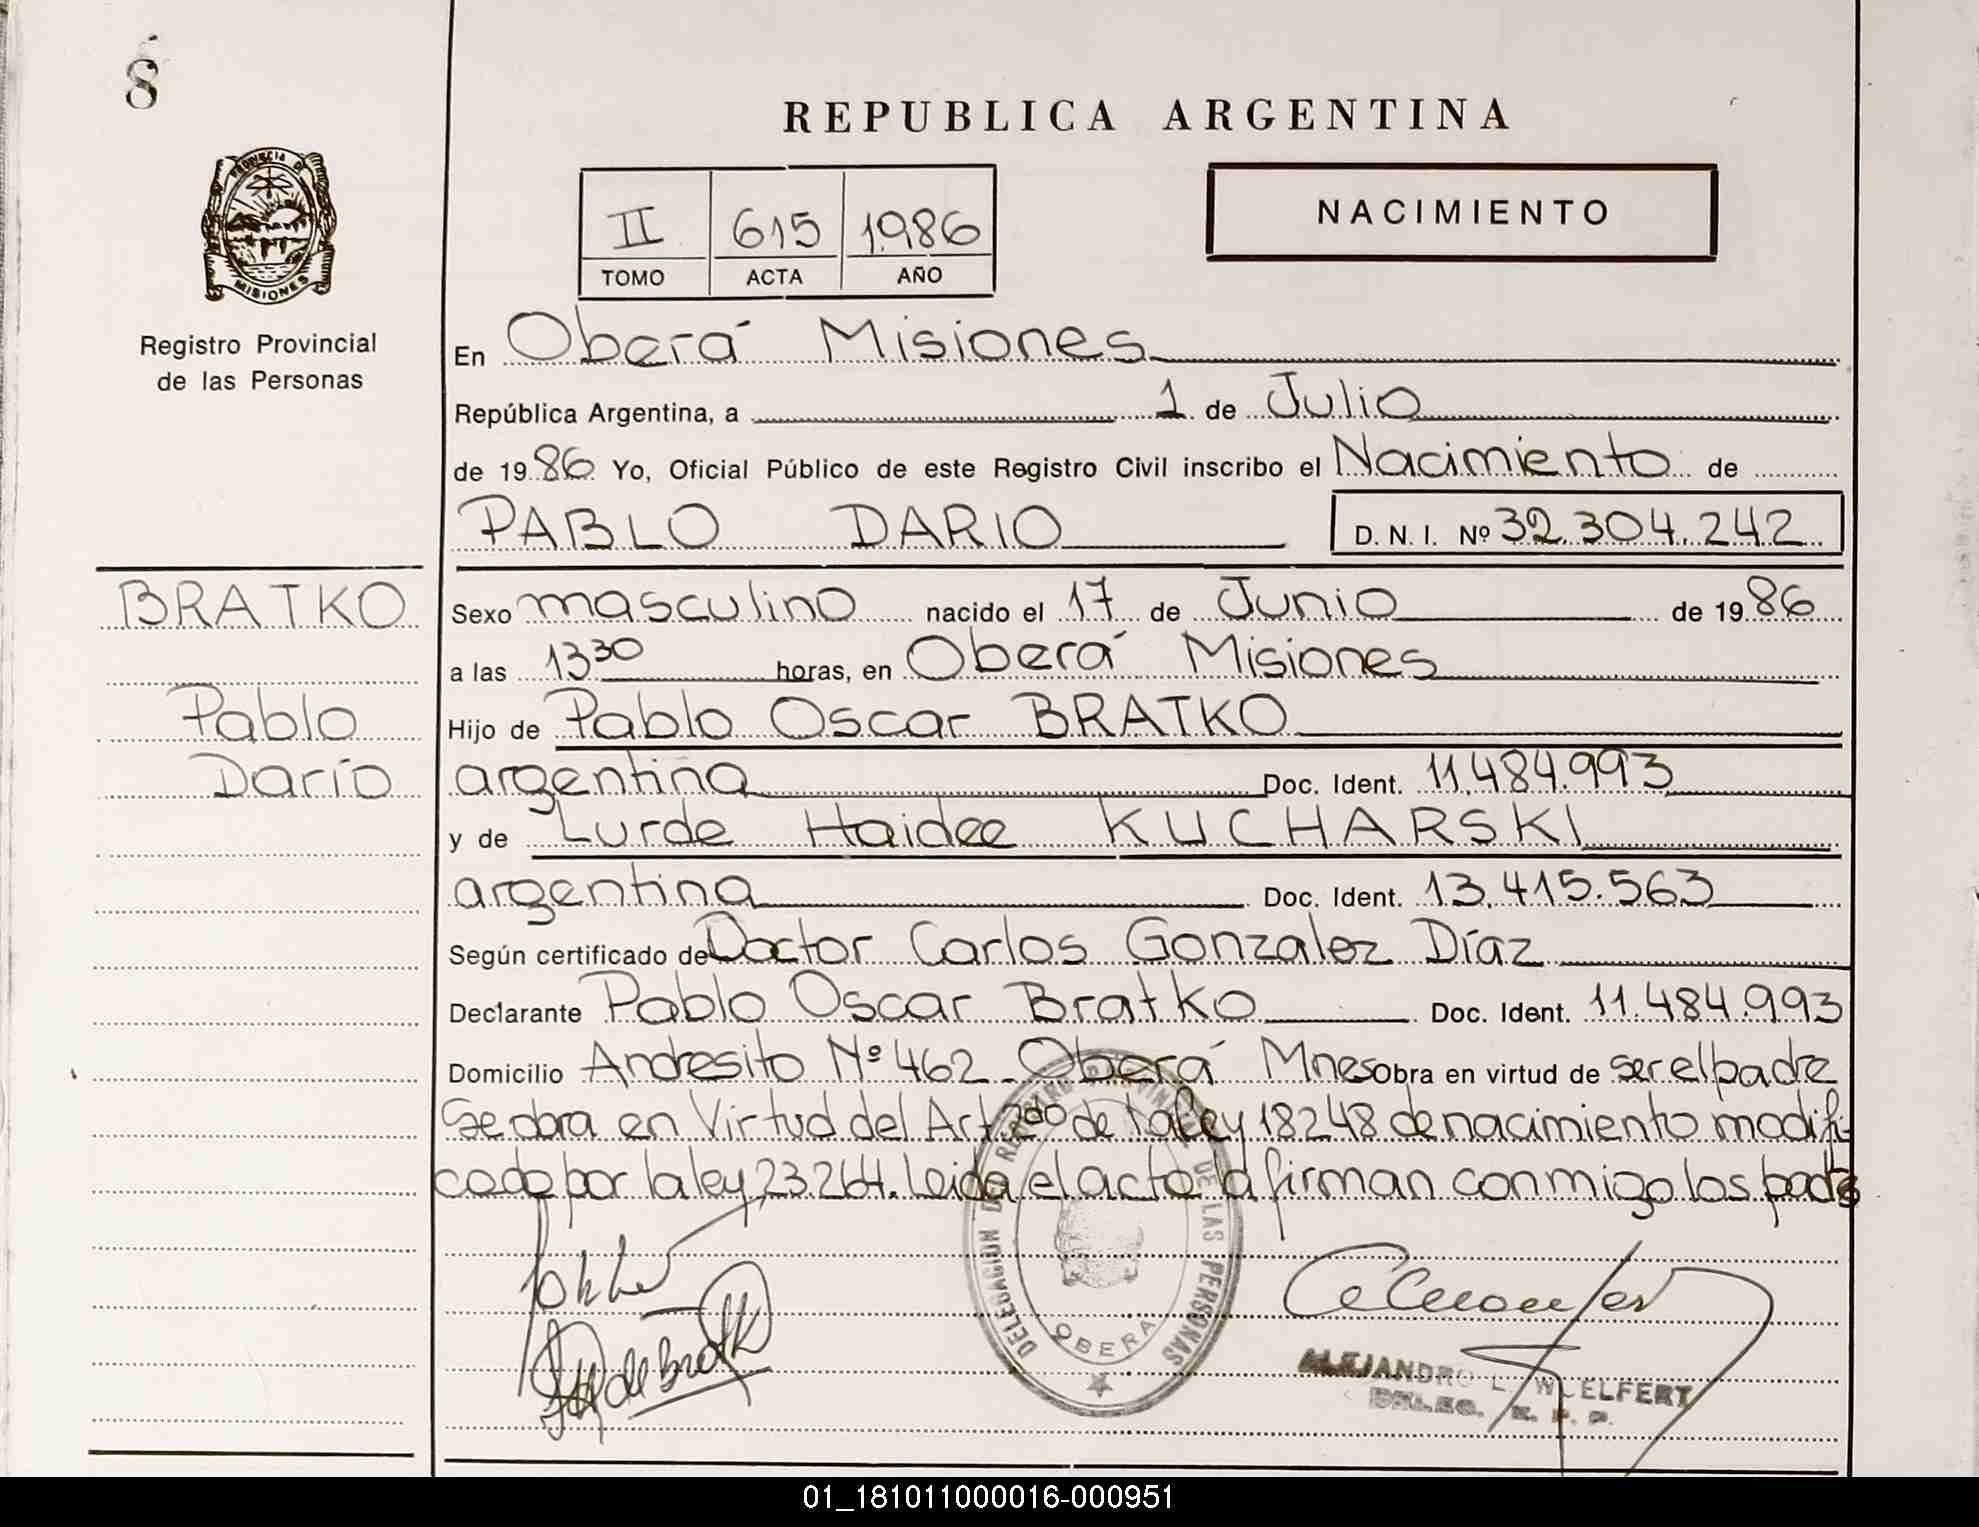 8
REPUBLICA ARGENTINA
PROVINCIA DE
MISIONES
Registro Provincial
de las Personas
II 615 1986
TOMO ACTA AÑO
NACIMIENTO
En Oberá Misiones
República Argentina, a 1 de Julio
de 1986 Yo, Oficial Público de este Registro Civil inscribo el Nacimiento de
PABLO DARIO D. N. I. Nº 32.304.242
BRATKO
Pablo
Darío
Sexo masculino nacido el 17 de Junio de 1986
a las 13 30 horas, en Oberá Misiones
Hijo de Pablo Oscar BRATKO
argentina Doc. Ident. 11.484.993
y de Lurde Haidee KUCHARSKI
argentina Doc. Ident. 13.415.563
Según certificado de Doctor Carlos Gonzalez Díaz
Declarante Pablo Oscar Bratko Doc. Ident. 11.484.993
Domicilio Andresito Nº 462 Oberá Mnes Obra en virtud de ser el padre
Se obra en Virtud del Art 2do de la ley 18248 de nacimiento modifi-
cado por la ley 23.264. Leida el acta la firman conmigo los padres
DELEGACION DEL REGISTRO PROVINCIAL DE LAS PERSONAS
OBERA
ALEJANDRO L. WOELFERT
DELEG. R. P. P.
01_181011000016-000951